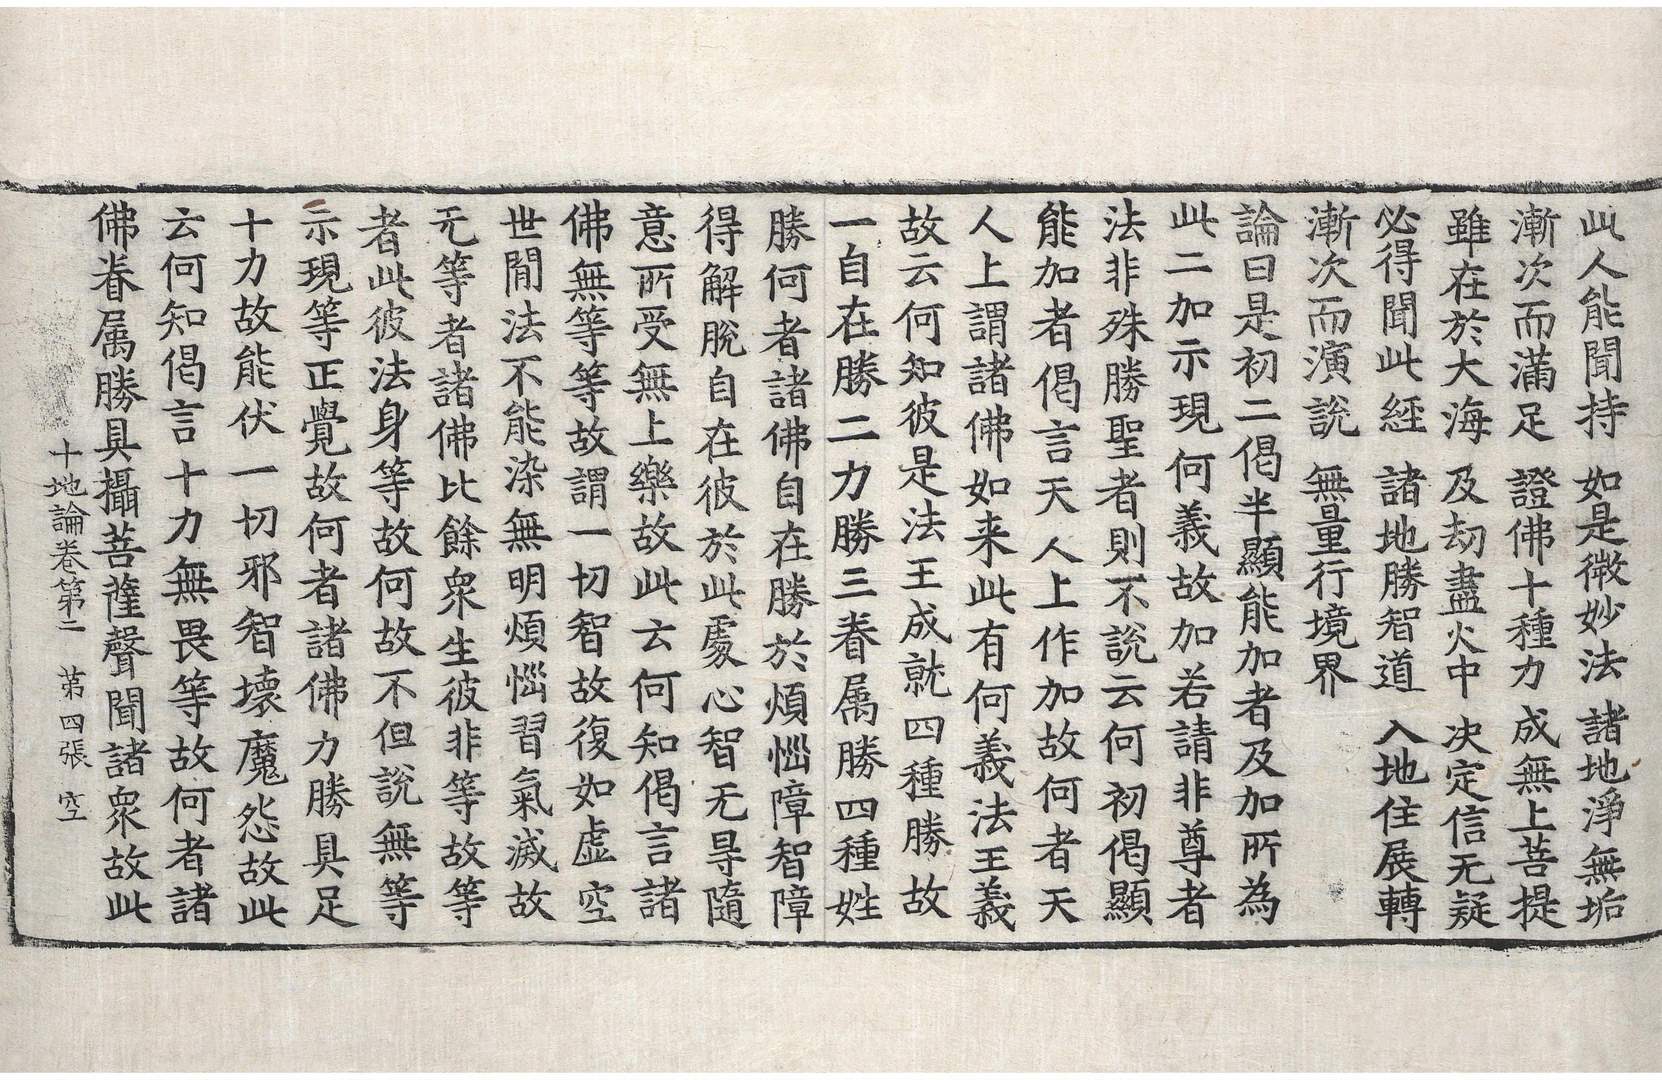 此人能聞持 如是微妙法 諸地淨無垢
漸次而滿足 證佛十種力 成無上菩提
雖在於大海 及劫盡火中 决定信无疑
必得聞此經 諸地勝智道 入地住展轉
漸次而演說 無量行境界
論曰是初二偈半顯能加者及加所為
此二加示現何義故加若請非尊者
法非殊勝聖者則不說云何初偈顯
能加者偈言天人上作加故何者天
人上謂諸佛如来此有何義法王義
故云何知彼是法王成就四種勝故
一自在勝二力勝三眷属勝四種姓
勝何者諸佛自在勝於煩惱障智障
得解脫自在彼於此處心智无㝵隨
意所受無上樂故此云何知偈言諸
佛無等等故謂一切智故復如虛空
世閒法不能染無明煩惱習氣滅故
无等者諸佛比餘衆生彼非等故等
者此彼法身等故何故不但說無等
示現等正覺故何者諸佛力勝具足
十力故能伏一切邪智壞魔怨故此
云何知偈言十力無畏等故何者諸
佛眷属勝具攝菩薩聲聞諸衆故此
十地論卷第二 第四張 空